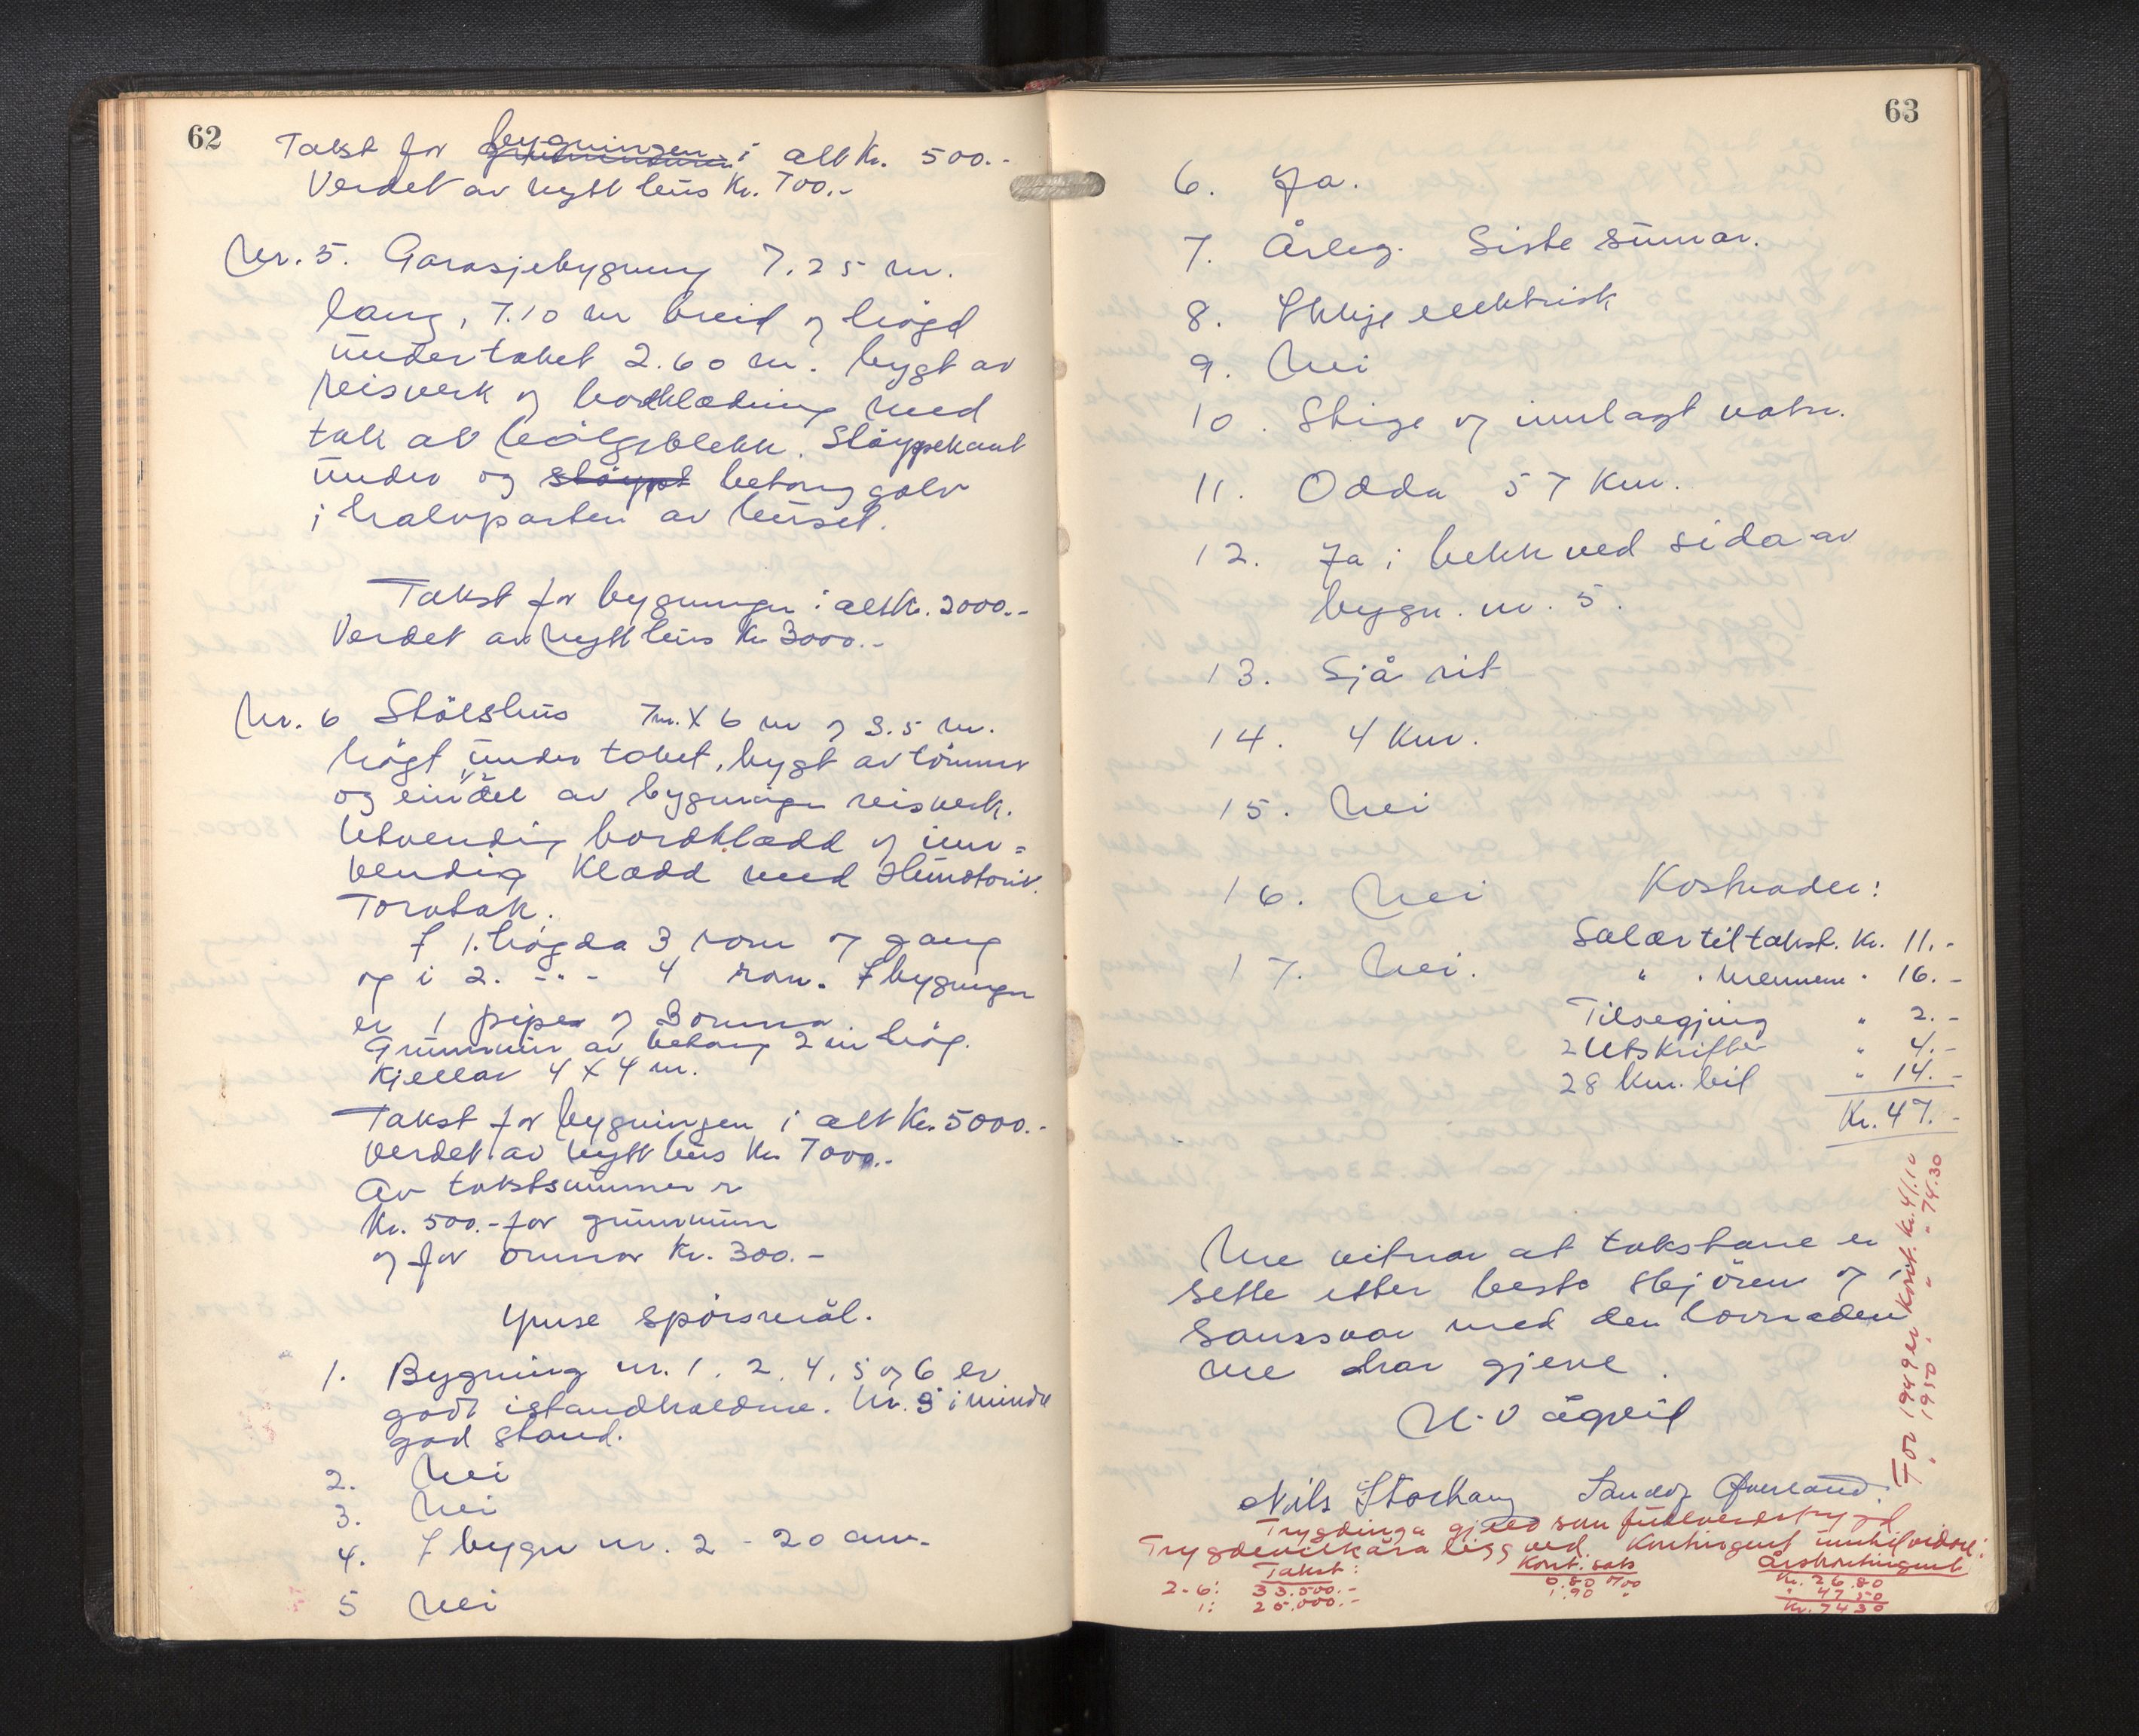 62
Takst for bygningen i alt kr. 500.-
Verdet av nytt hus kr. 700.-
Nr. 5. Garasjebygning 7.25 m.
lang, 7.10 m breid og høgd
under taket 2.60 m. bygt av
reisverk og bordklædning med
tak av bølgeblekk. Støypekant
under og støypt betong golv
i halvparten av huset.
Takst for bygningen i alt kr. 2000.-
Verdet av nytt hus kr 3000.-
Nr. 6 Stölshus 7m. X 6 m og 3.5 m.
högt under taket, bygt av tömmer
og ein del av bygningen reisverk.
Utvendig bordklædd og inn=
vendig klædd med
Torvtak.
I 1. högda 3 rom og gang
og i 2. -"- 4 rom. I bygningen
er 1 pipe og 3 omnar.
Grunnmur av betong 2 m høg.
Kjellar 4 X 4 m.
Takst for bygningen i alt kr. 5000.-
Verdet av nytt hus kr 7000.-
Av takstsummen er
kr. 500.- for grunnmur
og for omnar kr. 300.-
Ymse spörsmål.
1. Bygning nr. 1, 2, 4, 5 og 6 er
godt istandhaldne. Nr. 3 i mindre
god stand.
2. Nei
3. Nei
4. I bygn nr. 2 - 20 cm.
5 Nei
63
6. Ja.
7. Årleg. Siste sumar.
8. Ikkje elektrisk
9. Nei
10. Stige og innlagt vatn.
11. Odda 57 km.
12. Ja i bekk ved sida av
bygn. nr. 5.
13. Sjå rit
14. 4 km.
15. Nei
16. Nei
17. Nei.
Kostnader:
Salær til takst. kr. 11.-
" " mennene " 16.-
Tilsegjing " 2.-
2 Utskrifter " 4.-
28 km. bil " 14.-
Kr. 47.-
Me vitnar at takstane er
sette etter beste skjön og i
samsvar med den lovnaden
me har gjeve.
Nils Storhaug Sandor Øverland.
Trygdinga gjeld som fullverdstrygd
Trygdevilkåra ligg ved. Kontingent inntil vidare:
Takst: Kont. sats Årskontingent
2-6: 33.500.- 0.80 ‰ Kr. 26.80
1: 25.000.- 1.90 " " 47.50
Kr. 74.30
For 1949 er kont. kr. 41.10
" 1950 " " " 74.30